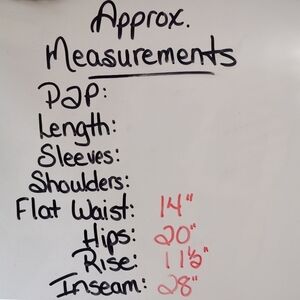 Approx.
Measurements
P2P:
Length:
Sleeves:
Shoulders:
Flat Waist: 14"
Hips: 20"
Rise: 11½"
Inseam: 28"